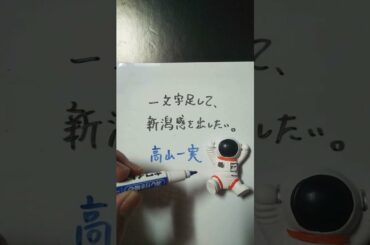 一文字足して、
新潟感を出したい。
高山一実
高